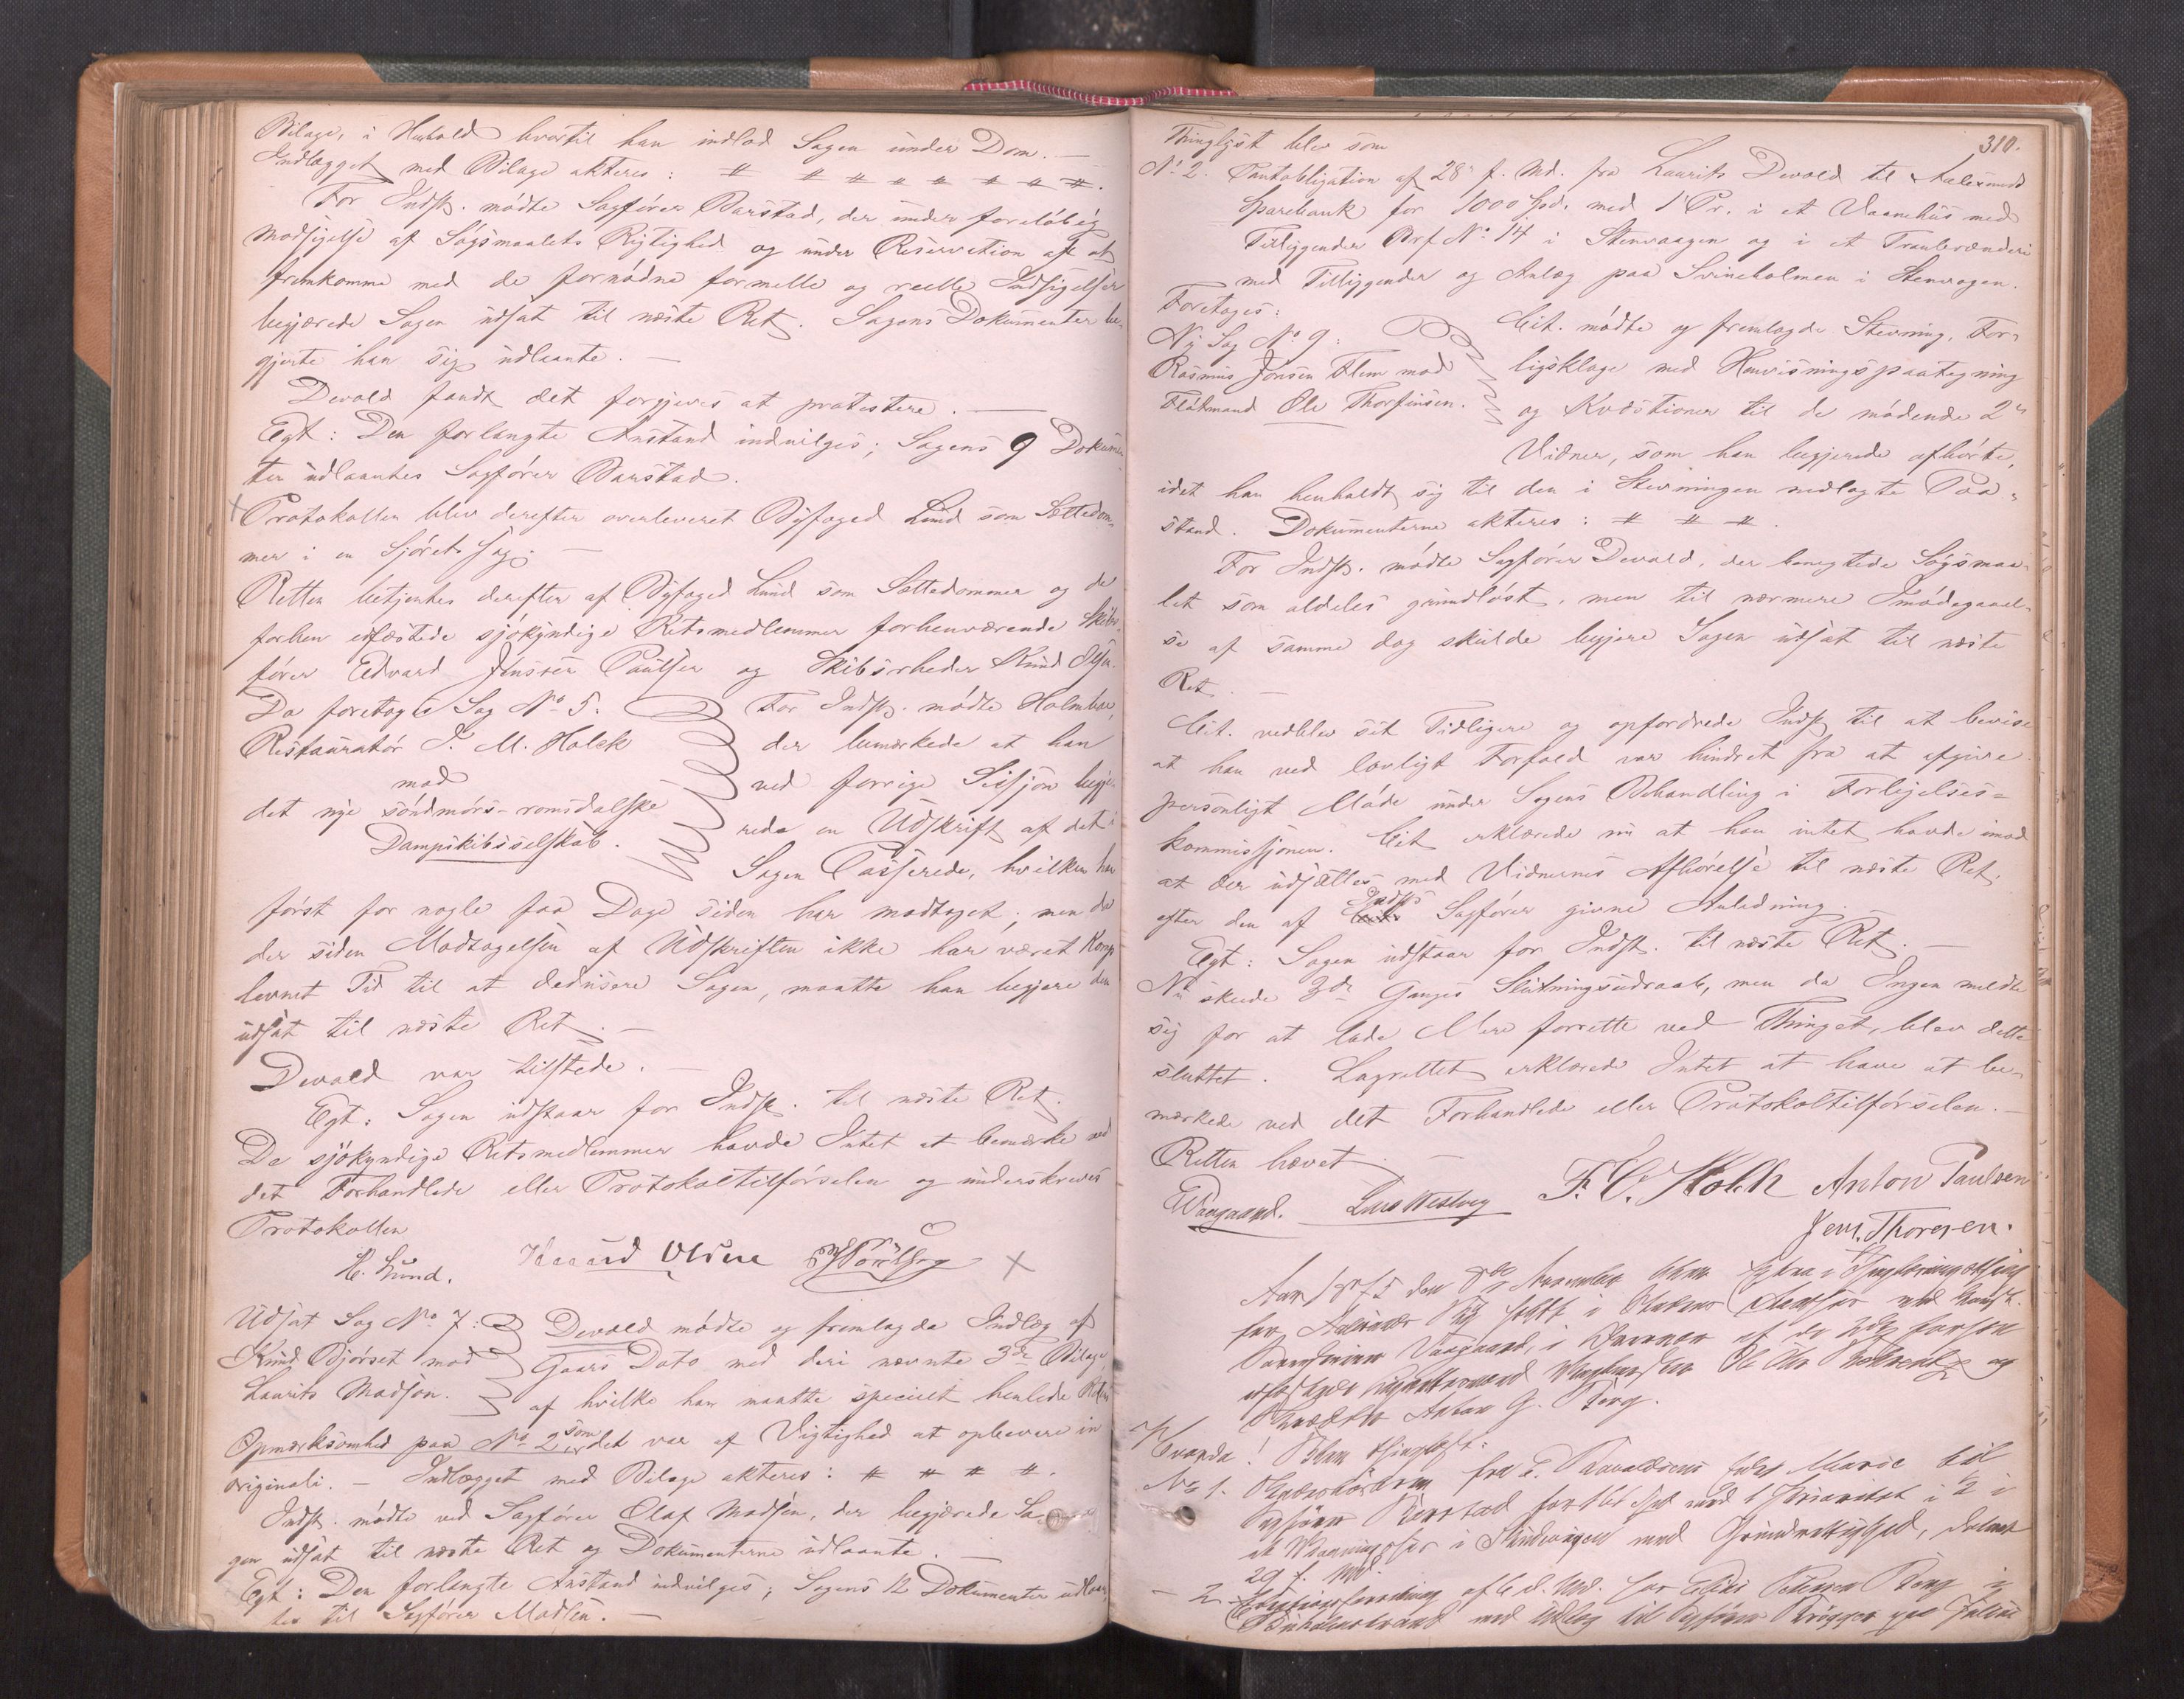 Bilage, i Henhold hvortil han indlod Sagen under Dom. —
Indlægget med Bilage akteres: # # # # # # #.
For Indst. mødte Sagfører Barstad, der under foreløbig
Modsigelse af Søgsmaalets Rigtighed og under Reservation af at
fremkomme med de fornødne formelle og reelle Indsigelser
begjærede Sagen udsat til næste Ret. Sagens Dokumenter be-
gjerte han sig udlaante. —
Devold fandt det forgjæves at protestere. —
Egt: Den forlangte Anstand indvilges; Sagens 9 Dokumen-
ter udlaantes Sagfører Barstad.
Protokollen blev derefter overleveret Byfoged Lund som Sættedom-
mer i en Sjørets Sag. —
Retten betjentes derefter af Byfoged Lund som Sættedommer og de
forhen edfæstede sjøkyndige Retsmedlemmer forhenværende Skibs-
fører Edvard Jensen Poulsen og Skibsrheder Knud Olsen.
Da foretoges Sag No 5.
Restauratør J. M. Holck
mod
det nye søndmørs-romsdalske
Dampskibsselskab.
For Indst. mødte Holmboe,
der bemærkede at han
ved forrige Session begjæ-
rede en Udskrift af det i
Sagen Passerede, hvilken han
først for nogle faa Dage siden har modtaget; men da
der siden Modtagelsen af Udskriften ikke har været Komp.
levnet Tid til at deducere Sagen, maatte han begjere den
udsat til næste Ret. —
Devold var tilstede. —
Egt: Sagen udstaar for Indst. til næste Ret.
De sjøkyndige Retsmedlemmer havde Intet at bemærke ved
det Forhandlede eller Protokoltilførselen og underskreves
Protokollen
H. Lund. Knud Olsen
Udsat Sag No 7:
Knud Bjørset mod
Laurits Madsen.
Devold mødte og fremlagde Indlæg af
Gaars Dato med deri nævnte 3de Bilage,
af hvilke han maatte specielt henlede Rettens
Opmærksomhed paa No 2 som det var af Vigtighed at opbevare in
originali. — Indlægget med Bilage akteres: # # # #.
Indst. mødte ved Sagfører Olaf Madsen, der begjærede Sa-
gen udsat til næste Ret og Dokumenterne udlaante. —
Egt: Den forlangte Anstand indvilges; Sagens 12 Dokumenter udlaan-
tes til Sagfører Madsen. —
310.
Thinglyst blev som
No 2. Pantobligation af 28 f. Md. fra Laurits Devold til Aalesunds
Sparebank for 1000 Spd. med 1 Pr. i et Vaanehus med
Tilliggender Brf No 14 i Stenvaagen og i et Tranbrænderi
med Tilliggender og Anlæg paa Svineholmen i Stenvagen.
Foretages:
Ny Sag No 9:
Rasmus Jonsen Flem mod
Flotmand Ole Thorfinsen.
Cit. mødte og fremlagde Stevning, For-
ligsklage med Henvisningspaategning
og Kvæstioner til de mødende 2
Vidner, som han begjerede afhørte,
idet han henholdt sig til den i Stevningen nedlagte Paa-
stand. Dokumenterne akteres: # # #.
For Indst. mødte Sagfører Devold, der benegtede Søgsmaa-
let som aldeles grundløst, men til nærmere Imødegaael-
se af samme dog skulde begjere Sagen udsat til næste
Ret. —
Cit. vedblev sit Tidligere og opfordrede Indst. til at bevise
at han ved lovligt Forfald var hindret fra at afgive
personligt Møde under Sagens Behandling i Forligelses-
kommissjonen. Cit. erklærede nu at han intet havde imod
at der udsættes med Vidnernes Afhørelse til næste Ret
efter den af Indst's Sagfører givne Anledning. —
Egt: Sagen udstaar for Indst. til næste Ret. —
Nu skede 3de Ganges Slutningsudraab, men da Ingen meldte
sig for at lade Mere forrette ved Thinget, blev dette
sluttet. Lagrettet erklærede Intet at have at be-
mærkede ved det Forhandlede eller Protokoltilførselen. —
Retten hævet. —
Vaagaard. Lars Westvig F. C. Holck Anton Paulsen
Jens. Thoresen.
Aar 1875 den November blev Extra
for Aalesunds By holdt i
Vaagaard, i Overvær af de forhen
og
Anton G. Berg.
Hvorda! Blev thinglæst:
No 1. fra E. Marie til
med 1 Prioritet i ½ i
et i med Grundrettighed, dateret
29 f. Md.
— 2. af 6 d. Md. hos Petersen Berg i
med Udlæg til